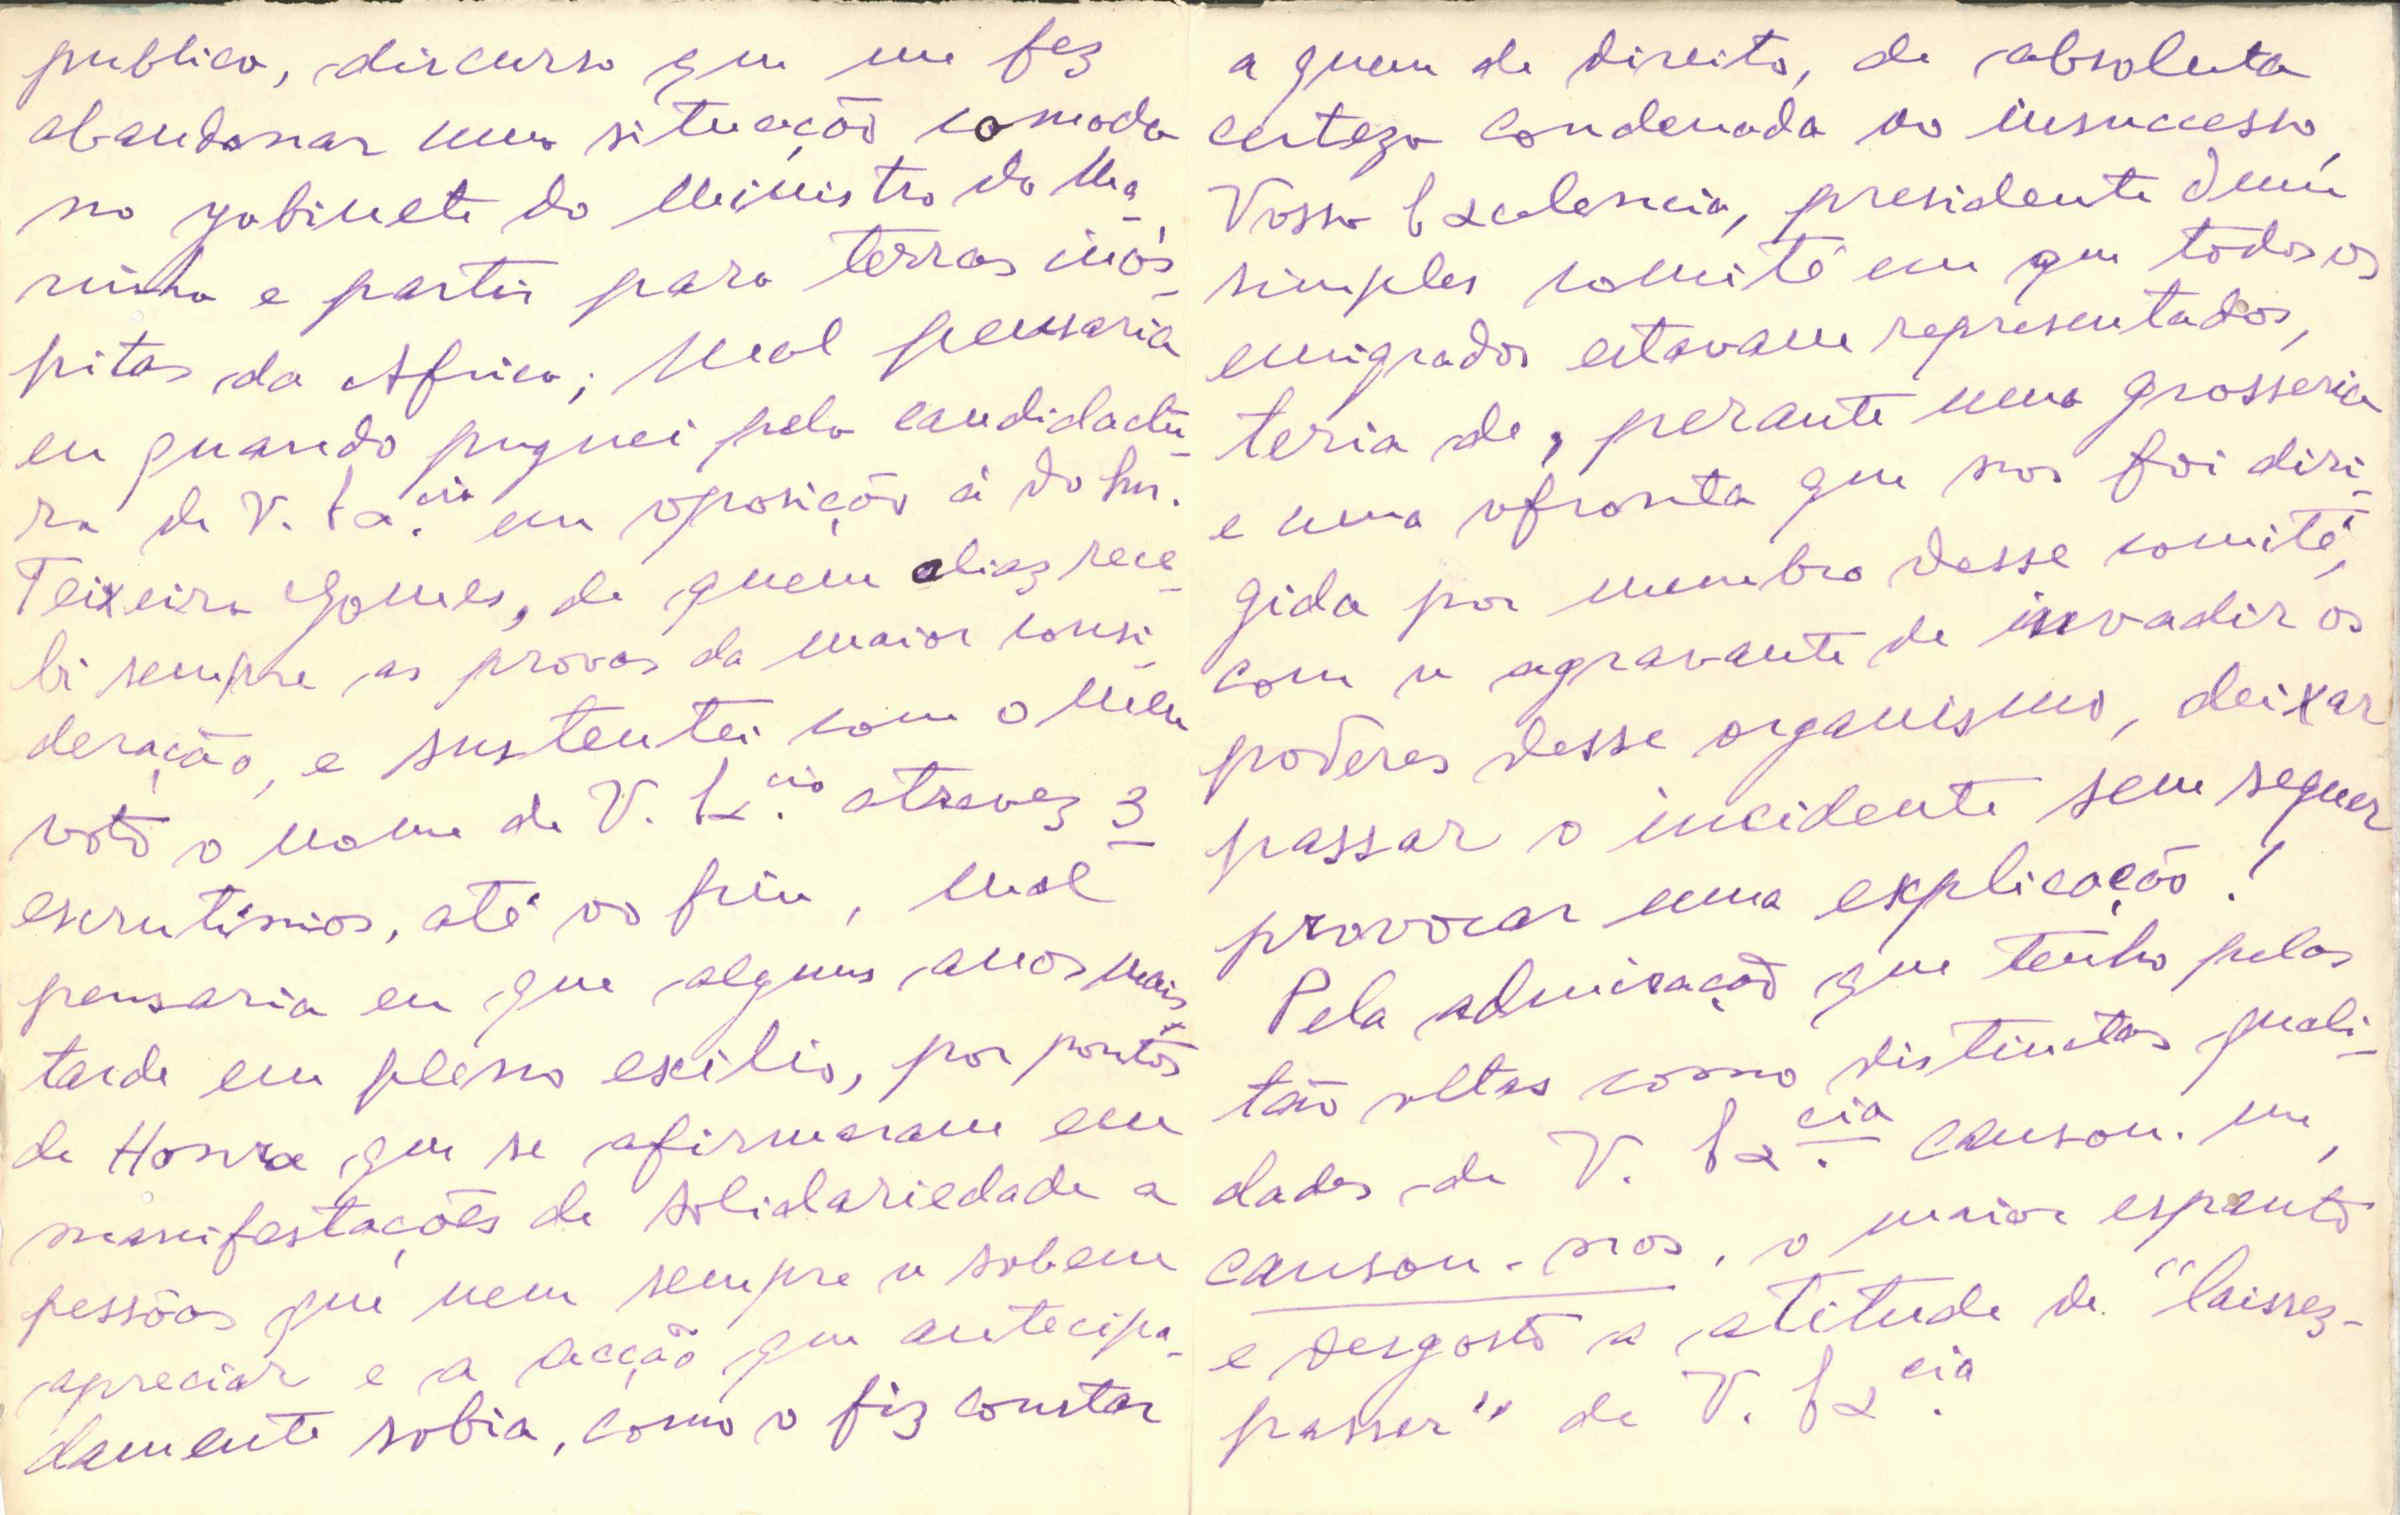 publico, discurso que me fez
abandonar uma situação comoda
no gabinete do Ministro da Ma-
rinha e partir para terras inós-
pitas da Africa; mal pensaria
eu quando pugnei pela candidactu-
ra de V. Ex.cia em oposição á do Snr.
Teixeira Gomes, de quem aliaz rece-
bi sempre as provas da maior consi-
deração, e sustentei com o meu
voto o nome de V. Ex.cia atravez 3
escrutinios, até ao fim, mal
pensaria eu que alguns anos mais
tarde em pleno exilio, por pontos
de Honra que se afirmaram em
manifestações de solidariedade a
pessôas que nem sempre a sabem
apreciar e a acção que antecipa-
damente sabia, como o fiz constar
a quem de direito, de absoluta
certeza condenada ao insuccesso,
Vossa Excelencia, presidente d'um
simples comité em que todos os
emigrados estavam representados,
teria de, perante uma grosseria
e uma afronta que nos foi diri-
gida por membro desse comité,
com a agravante de invadir os
poderes desse organismo, deixar
passar o incidente sem sequer
provocar uma explicação!
Pela admiração que tenho pelas
tão altas como distinctas quali-
dades de V. Ex.cia causou-me,
causou-nos, o maior espanto
e desgosto a atitude de "laissez-
passer" de V. Ex.cia